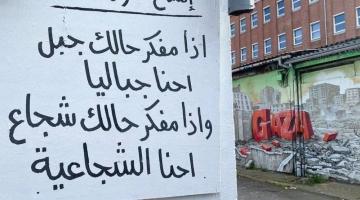 اذا مفكر حالك جبل
احنا جباليا
واذا مفكر حالك شجاع
احنا الشجاعية
GAZA